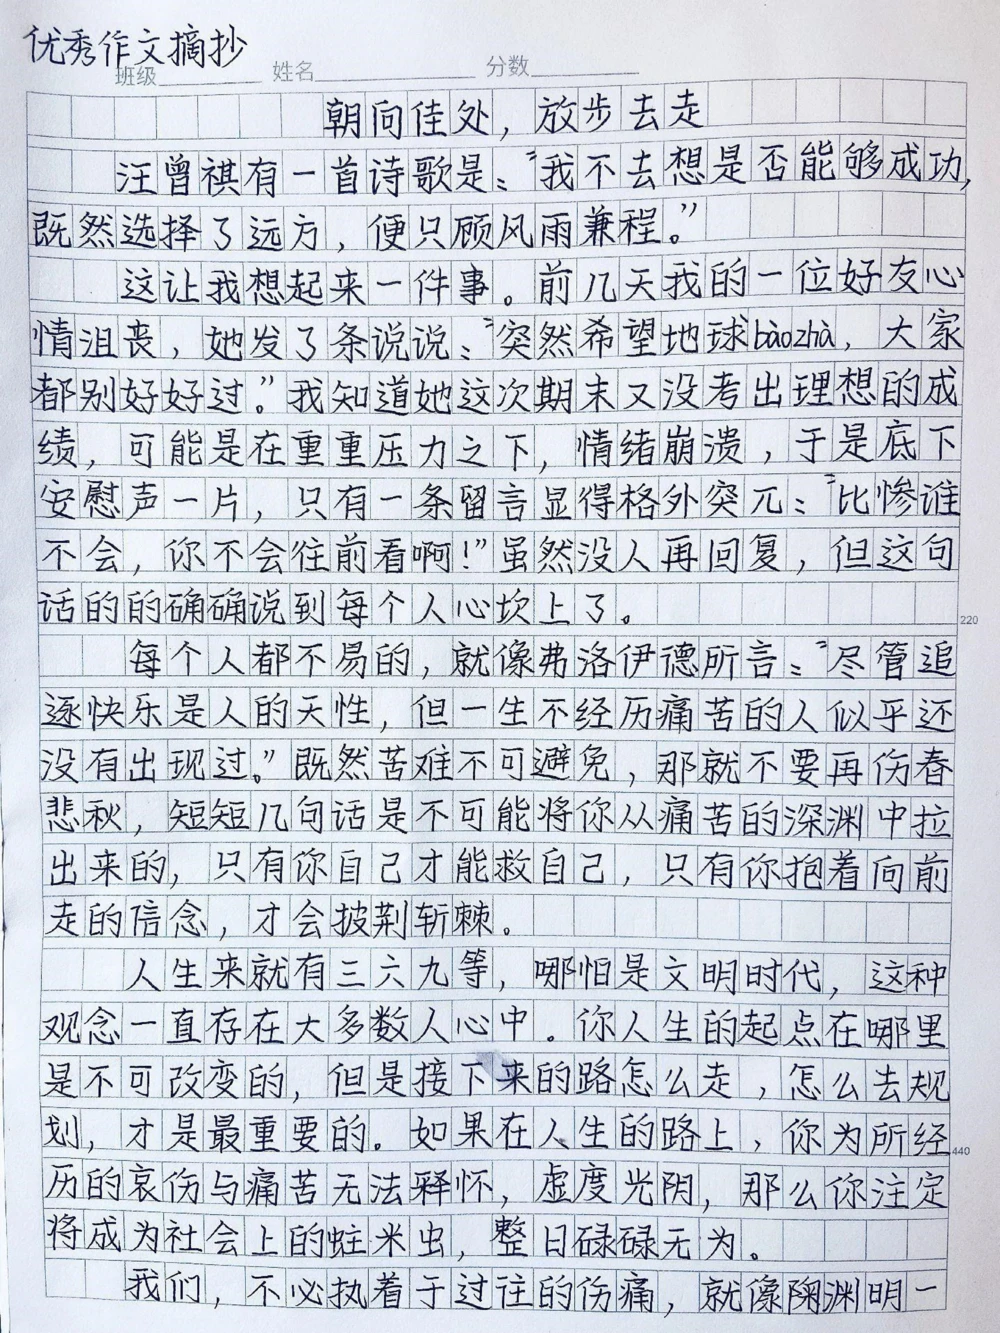 优秀作文摘抄
班级 姓名 分数
朝向佳处，放步去走
汪曾祺有一首诗歌是：“我不去想是否能够成功，
既然选择了远方，便只顾风雨兼程。”
这让我想起来一件事。前几天我的一位好友心
情沮丧，她发了条说说：“突然希望地球bàozhà，大家
都别好好过。”我知道她这次期末又没考出理想的成
绩，可能是在重重压力之下，情绪崩溃，于是底下
安慰声一片，只有一条留言显得格外突兀：“比惨谁
不会，你不会往前看啊！”虽然没人再回复，但这句
话的的确确说到每个人心坎上了。
220
每个人都不易的，就像弗洛伊德所言：“尽管追
逐快乐是人的天性，但一生不经历痛苦的人似乎还
没有出现过。”既然苦难不可避免，那就不要再伤春
悲秋，短短几句话是不可能将你从痛苦的深渊中拉
出来的，只有你自己才能救自己，只有你抱着向前
走的信念，才会披荆斩棘。
人生来就有三六九等，哪怕是文明时代，这种
观念一直存在大多数人心中。你人生的起点在哪里
是不可改变的，但是接下来的路怎么走，怎么去规
划，才是最重要的。如果在人生的路上，你为所经
440
历的哀伤与痛苦无法释怀，虚度光阴，那么你注定
将成为社会上的蛀米虫，整日碌碌无为。
我们，不必执着于过往的伤痛，就像陶渊明一